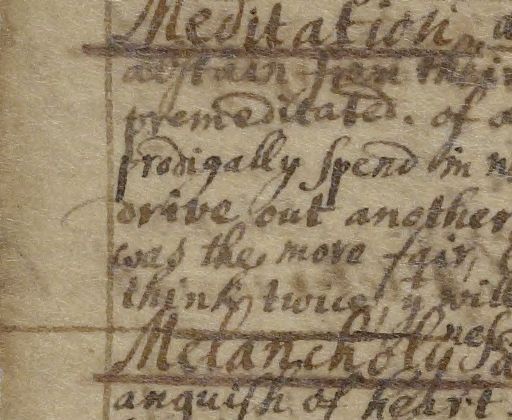 Meditation
abstain from their
premeditated. of
prodigally spend in
drive out another
was the more fair,
think twice, yt will
Melancholy
anguish of heart